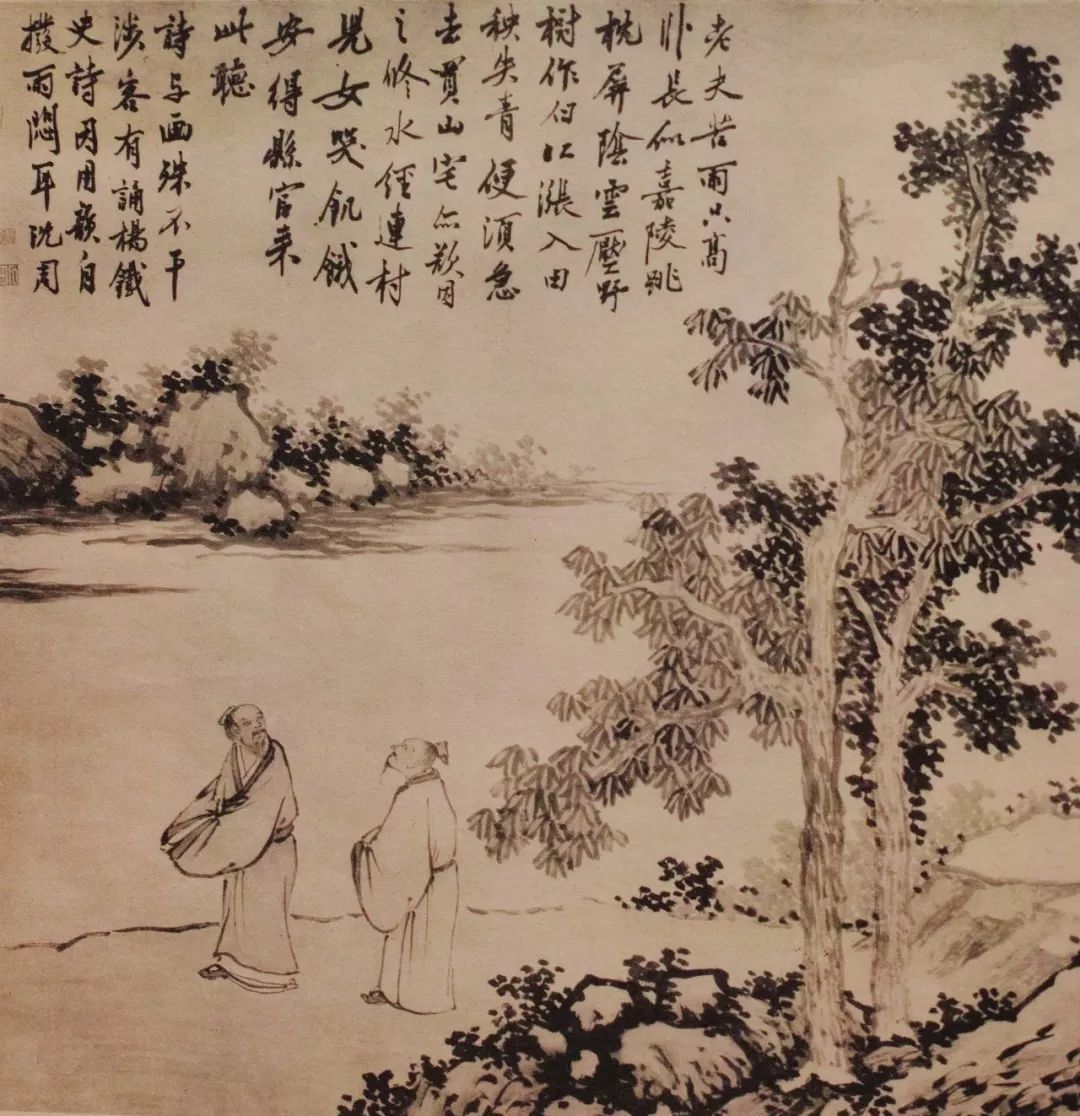 老夫苦雨只高
卧長似嘉陵眺
枕屏陰雲壓野
樹作白江漲入田
秧失青便須急
去買山宅亦欲因
之修水經連村
児女哭飢餓
安得縣官来
此聽
詩与画殊不干
涉客有誦楊鐵
史詩因用韻自
撥雨悶耳沈周